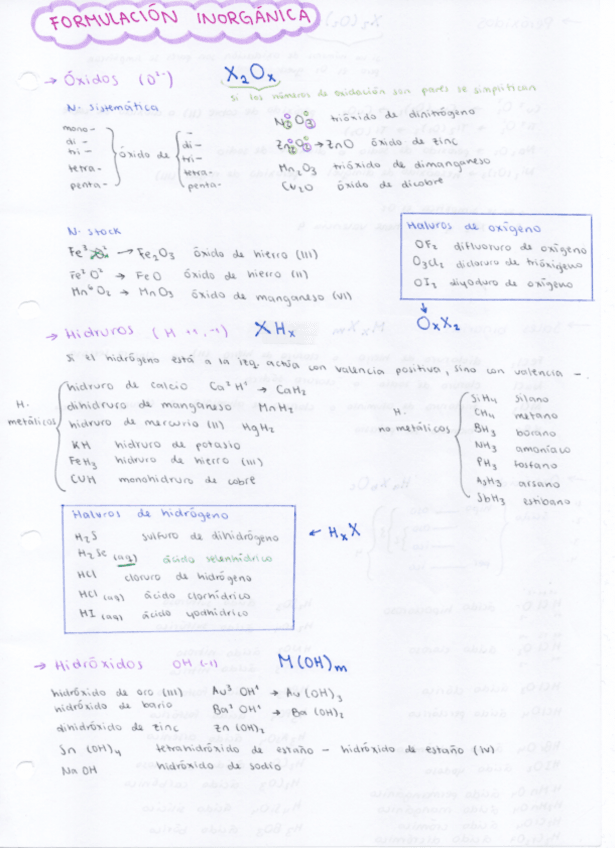 FORMULACIÓN INORGÁNICA
→ Óxidos (O²⁻) X₂Oₓ
si los números de oxidación son pares se simplifican
N. sistemática
mono- -
di - di -
tri - óxido de tri -
tetra- tetra-
penta- penta-
N₂O₃ trióxido de dinitrógeno
Zn₂O₂ → ZnO óxido de zinc
Mn₂O₃ trióxido de dimanganeso
Cu₂O óxido de dicobre
N. stock
Fe³ O² → Fe₂O₃ óxido de hierro (III)
Fe² O² → FeO óxido de hierro (II)
Mn⁶ O₂ → MnO₃ óxido de manganeso (VI)
Haluros de oxígeno
OF₂ difluoruro de oxígeno
O₃Cl₂ dicloruro de trióxigeno
OI₂ diyoduro de oxígeno
↓
OₓX₂
→ Hidruros (H +1, -1) XHₓ
Si el hidrógeno está a la izq. actúa con valencia positiva, sino con valencia -.
H. metálicos
hidruro de calcio Ca² H¹ → CaH₂
dihidruro de manganeso MnH₂
hidruro de mercurio (II) HgH₂
KH hidruro de potasio
FeH₃ hidruro de hierro (III)
CuH monohidruro de cobre
H. no metálicos
SiH₄ silano
CH₄ metano
BH₃ borano
NH₃ amoníaco
PH₃ fosfano
AsH₃ arsano
SbH₃ estibano
Haluros de hidrógeno
H₂S sulfuro de dihidrógeno
H₂Se (aq) ácido selenhídrico
HCl cloruro de hidrógeno
HCl (aq) ácido clorhídrico
HI (aq) ácido yodhídrico
← HₓX
→ Hidróxidos OH (-1) M(OH)ₘ
hidróxido de oro (III) Au³ OH¹ → Au(OH)₃
hidróxido de bario Ba² OH¹ → Ba(OH)₂
dihidróxido de zinc Zn (OH)₂
Sn (OH)₄ tetrahidróxido de estaño - hidróxido de estaño (IV)
Na OH hidróxido de sodio